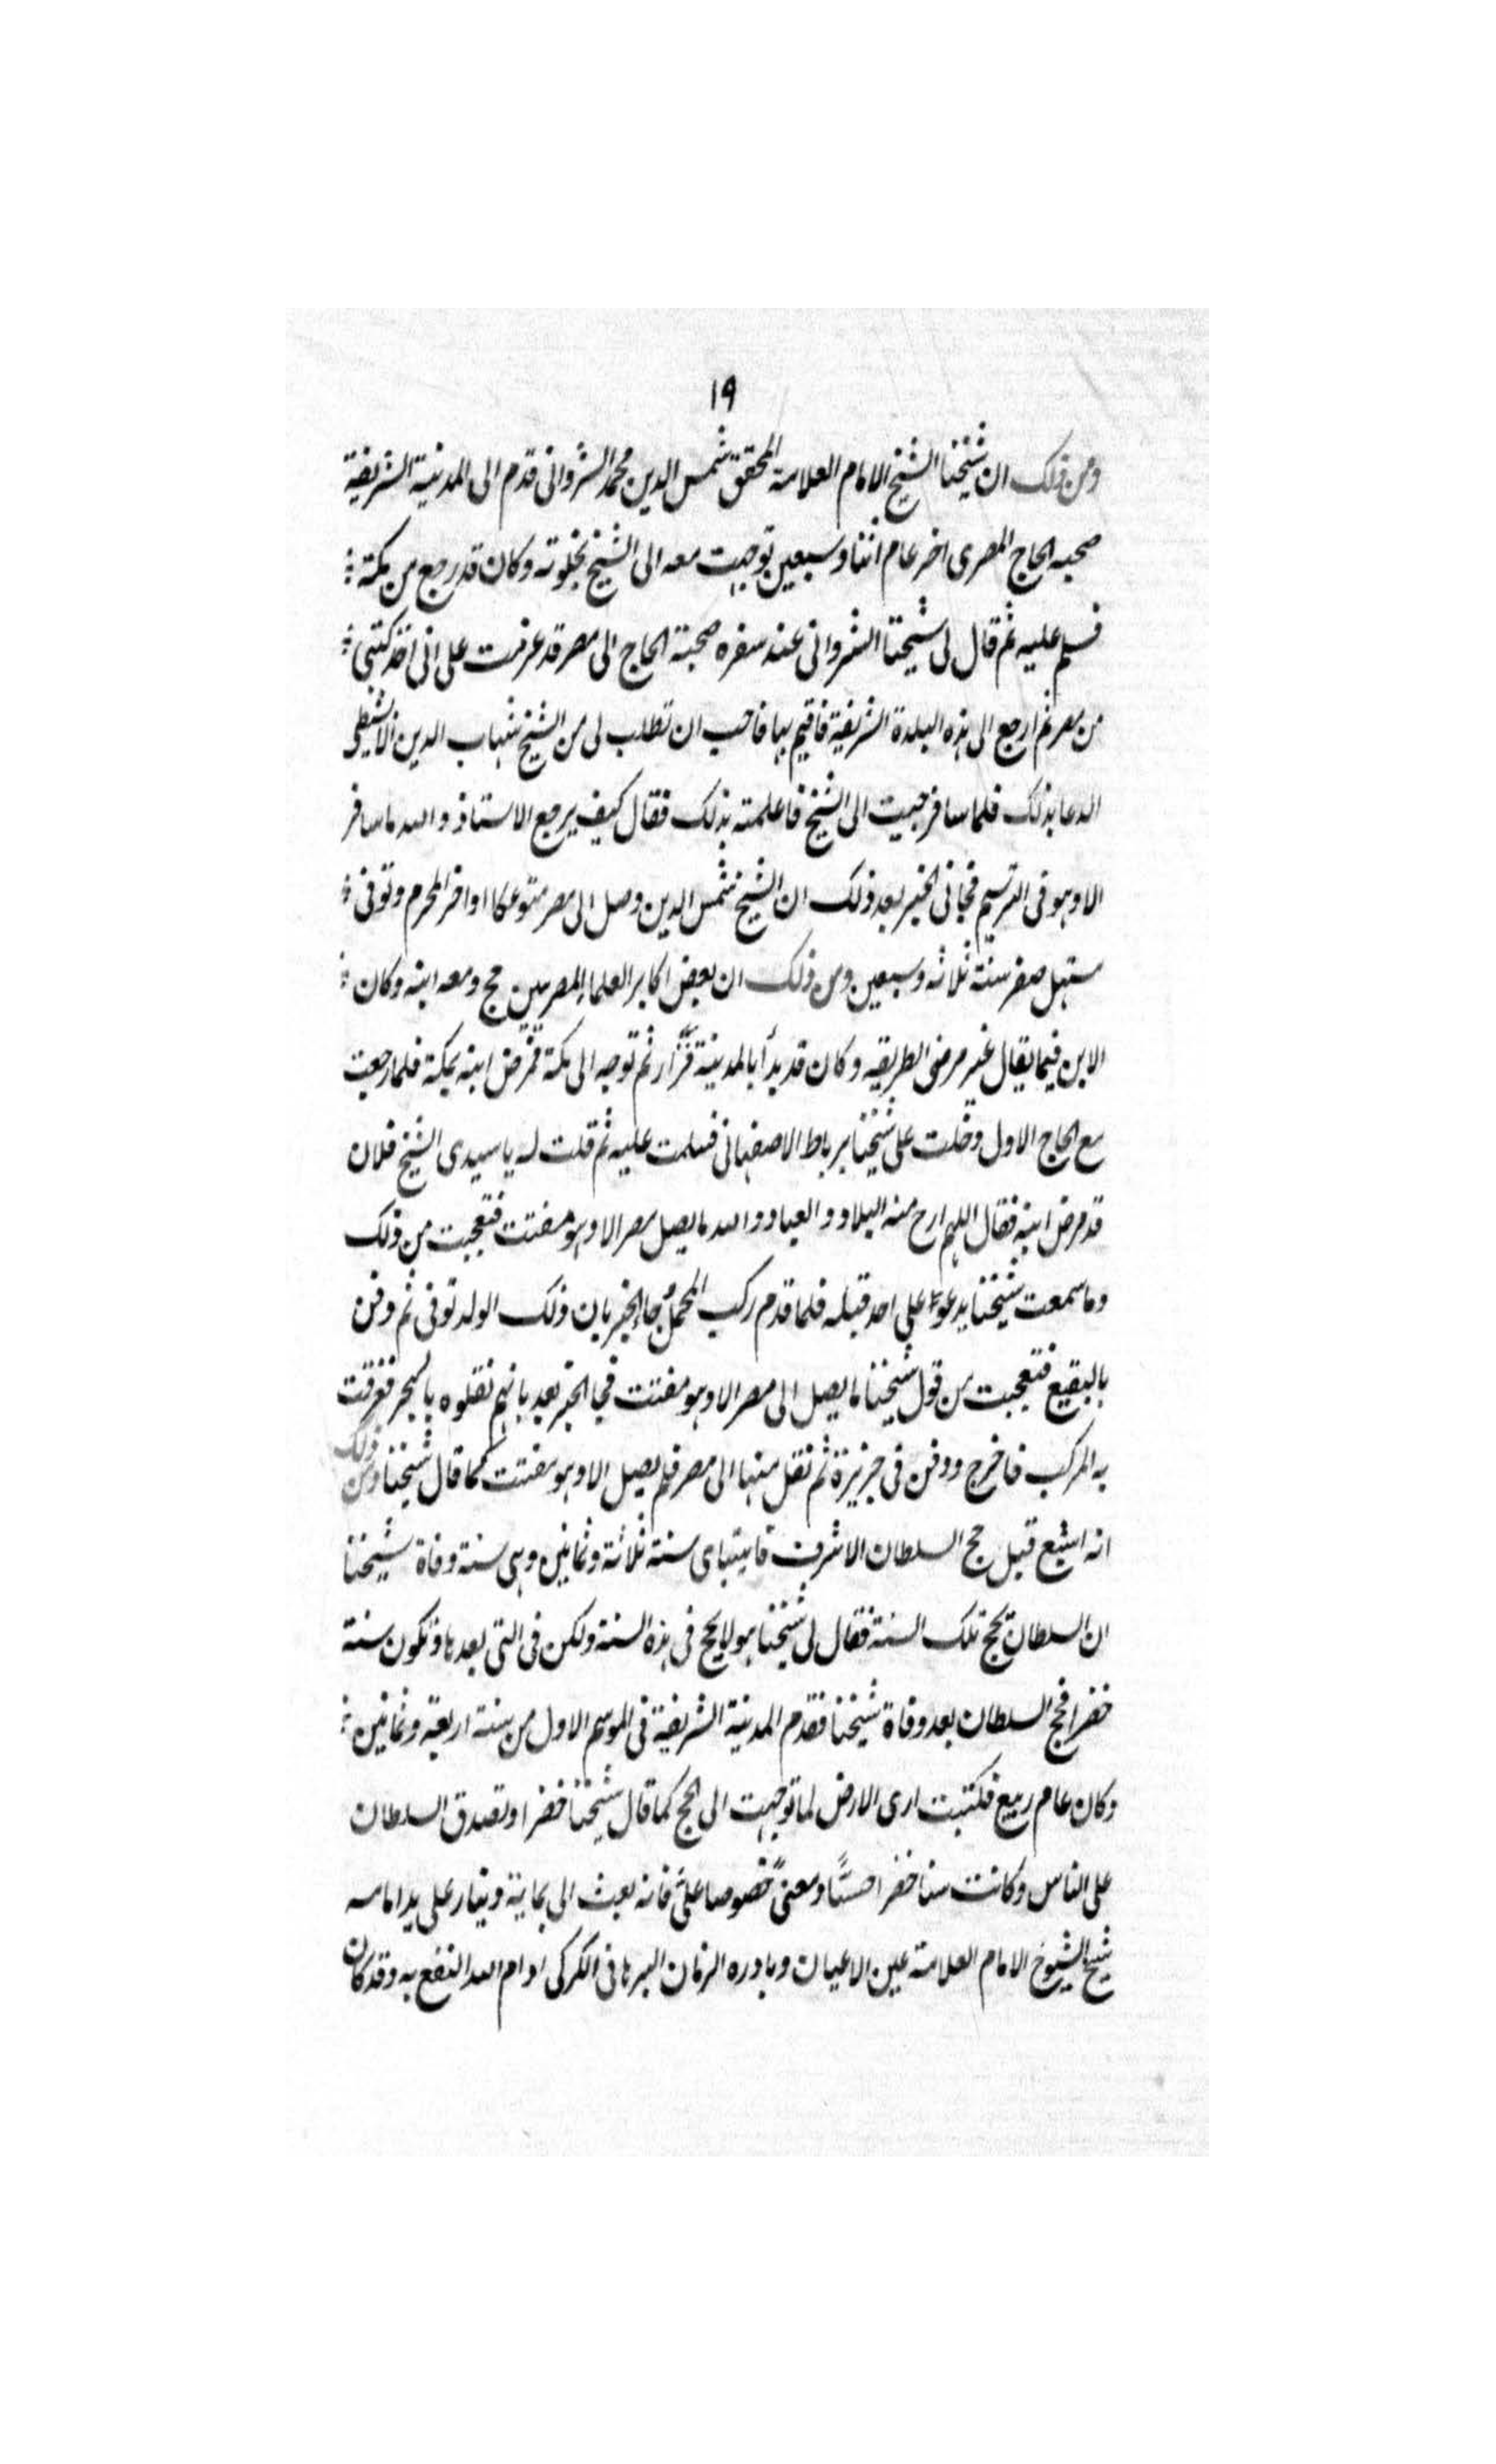 ١٩
ومن ذلك ان شيخنا الشيخ الامام العلامة المحقق شمس الدين محمد الشرواني قدم الى المدينة الشريفة
صحبه الحاج المصرى اخر عام اثنا وسبعين توجهت معه الى الشيخ بخلوته وكان قد رجع من مكة
فسلم عليه ثم قال لى شيخنا الشروانى عند سفره صحبة الحاج الى مصر قد عزمت على انى اخذ كتبى
من مصر ثم ارجع الى هذه البلدة الشريفة فاقيم بها فاحب ان تطلب لى من الشيخ شهاب الدين الابشيطى
الدعا بذلك فلما سافر جيت الى الشيخ فاعلمته بذلك فقال كيف يرجع الاستاذ والله ما سافر
الا وهو فى الترسيم فجانى الخبر بعد ذلك ان الشيخ شمس الدين وصل الى مصر متوعكا اواخر المحرم وتوفى
مستهل صفر سنة ثلاثه وسبعين ومن ذلك ان بعض اكابر العلماء المصريين حج ومعه ابنه وكان
الابن فيما يقال غير مرضى الطريقه وكان قد بدأ بالمدينة فزار ثم توجه الى مكة فمرض ابنه بمكة فلما رجعت
مع الحاج الاول دخلت على شيخنا برباط الاصفهانى فسلمت عليه ثم قلت له يا سيدى الشيخ فلان
قد مرض ابنه فقال اللهم ارح منه البلاد والعباد والله ما يصل مصر الا وهو مفتت فتعجبت من ذلك
وما سمعت شيخنا يدعو على احد قبله فلما قدم ركب المحمل جاء الخبر بان ذلك الولد توفى ثم دفن
بالبقيع فتعجبت من قول شيخنا ما يصل الى مصر الا وهو مفتت فجا الخبر بعد بانهم نقلوه بالبحر فغرقت
به المركب فاخرج ودفن فى جزيرة ثم نقل منها الى مصر فلم يصل الا وهو مفتت كما قال شيخنا ومن ذلك
انه اشيع قبل حج السلطان الاشرف قايتباى سنة ثلاثة وثمانين وهى سنة وفاة شيخنا
ان السلطان يحج تلك السنة فقال لى شيخنا هو لا يحج فى هذه السنة ولكن فى التى بعدها وتكون سنة
خضرا فحج السلطان بعد وفاة شيخنا فقدم المدينة الشريفة فى الموسم الاول من سنة اربعة وثمانين
وكان عام ربيع فكتبت ارى الارض لما توجهت الى الحج كما قال شيخنا خضرا وتصدق السلطان
على الناس وكانت سنا خضرا حسًّا ومعنىً خصوصا علىّ فانه بعث الى بماية دينار على يد امامه
شيخ الشيوخ الامام العلامة عين الاعيان ونادره الزمان البرهانى الكركى ادام الله النفع به وقد كان